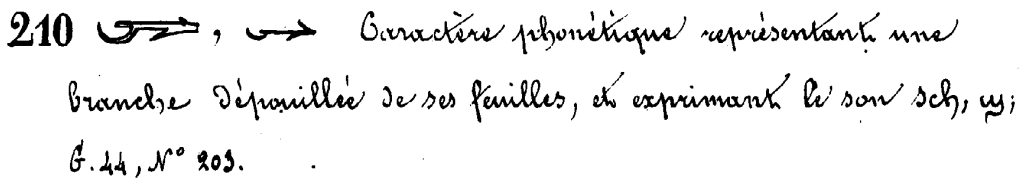 210 𓆱, 𓆱 Caractère phonétique représentant une
branche dépouillée de ses feuilles, et exprimant le son sch, ϣ;
G. 44, N° 203.